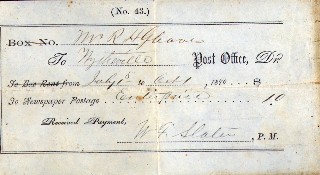 (No. 43.)
Box No. Mr R H Gleaves
To Wytheville Post Office, Dr.
To Box Rent from July 1 to Oct 1, 18
To Newspaper Postage 10
Received Payment,
W. F. Slater, P. M.